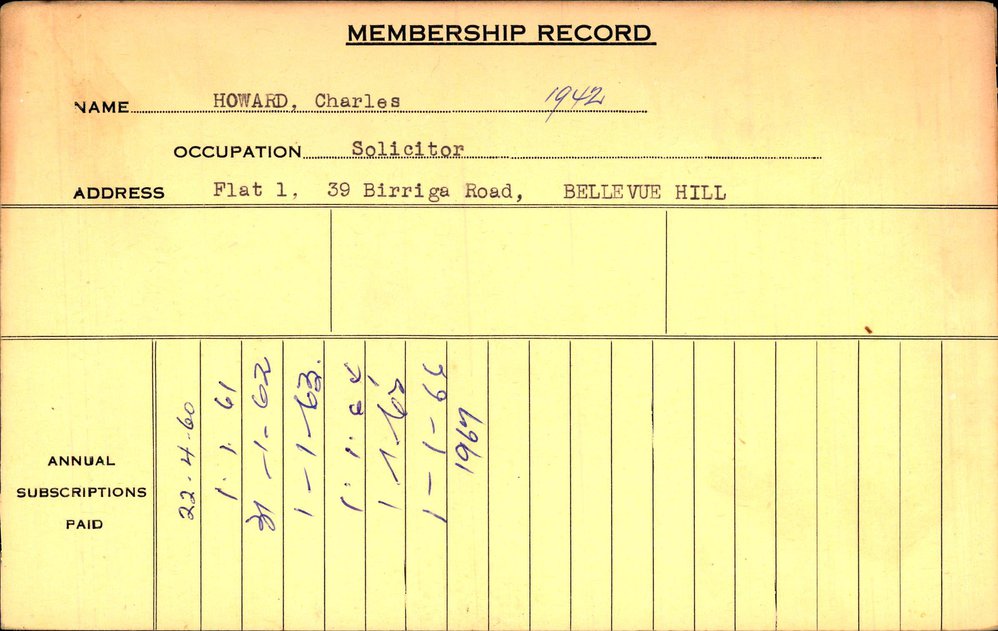 MEMBERSHIP RECORD
NAME HOWARD, Charles 1942
OCCUPATION Solicitor
ADDRESS Flat 1, 39 Birriga Road, BELLEVUE HILL
ANNUAL
SUBSCRIPTIONS
PAID
22-4-60
1.1.61
31-1-62
1-1-63.
1.1.64
1.1.65
1-1-66
1967